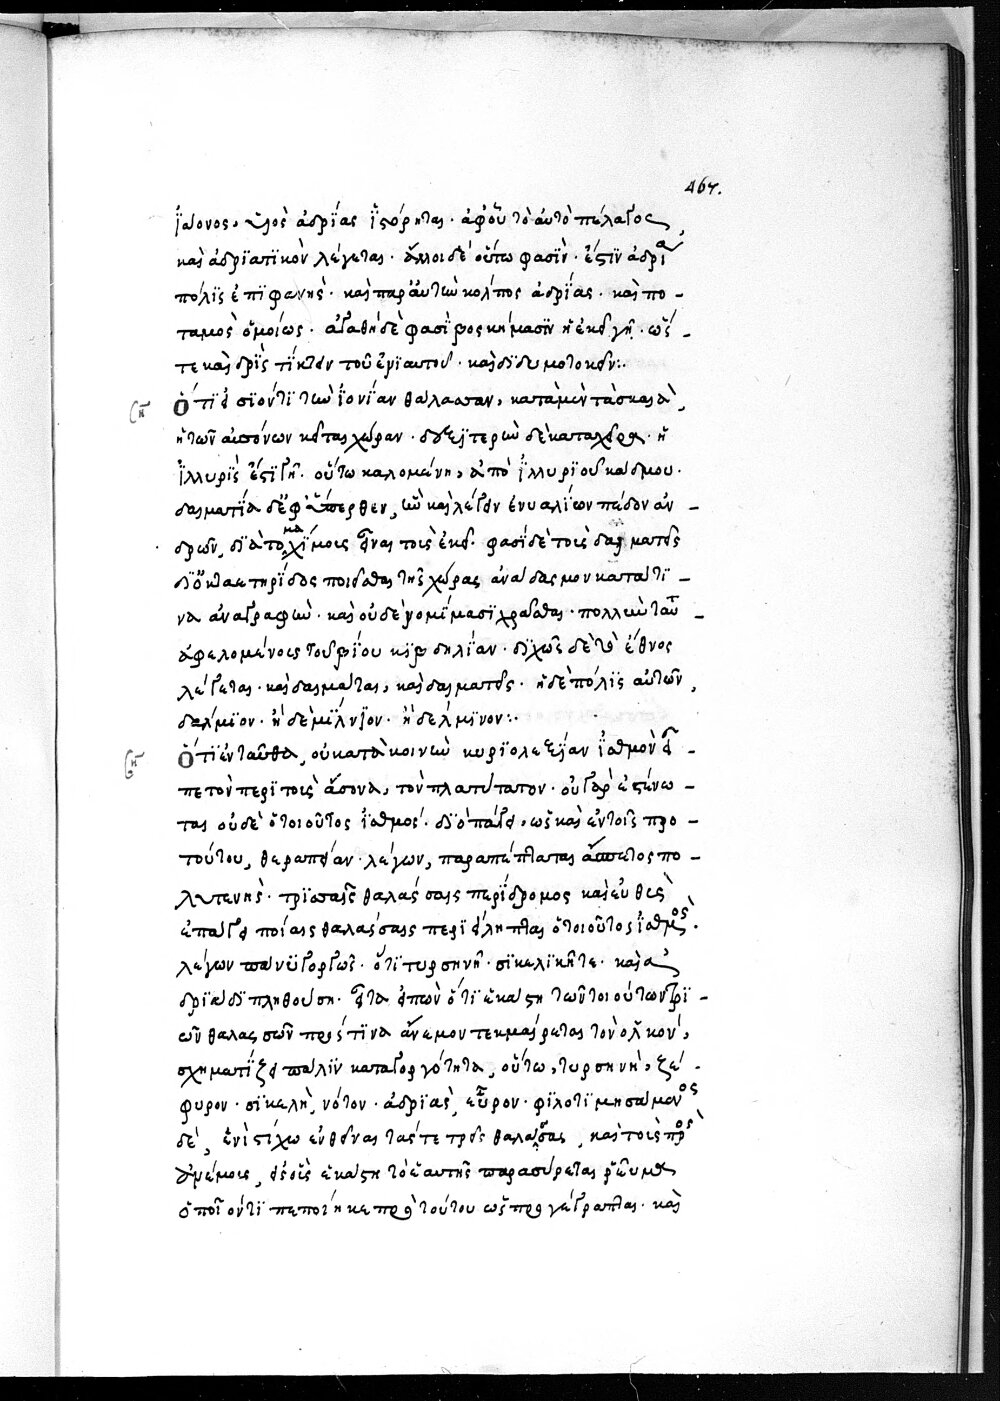 467.
ἰάονος, υἱὸς ἀδρίας ἱστόρηται. ἀφ' οὗ τὸ αὐτὸ πέλαγος,
καὶ ἀδριατικὸν λέγεται. ἄλλοι δὲ οὕτω φασὶν. ἔστιν ἀδρία
πόλις ἐπιφανής. καὶ παρ' αὐτῶν κόλπος ἀδρίας. καὶ πο-
ταμὸς ὁμοίως. ἀγαθὴ δὲ φασὶ βοσκήμασιν ἡ ἐκεῖ γῆ. ὥσ-
τε καὶ δρὶς τίκτειν τοῦ ἐνιαυτοῦ. καὶ διδυμοτοκεῖν:
Ὅτι εἰσιόντι τὴν ἰονίαν θάλασσαν, κατὰ μὲν τὰ σκαιὰ,
ἡ τῶν αὐσόνων κεῖται χώραν. δεξιτερὼν δὲ κατὰ χεῖρα. ἡ
ἰλλυρὶς ἐστὶ γῆ. οὕτω καλομένη, ἀπὸ ἰλλυριοῦ κάδμου.
δαλματία δὲ ἐφύπερθεν, ἣν καὶ λέγειν ἐνυαλίων πέδον ἀν-
δρῶν, διὰ τὸ μαχίμους εἶναι τοὺς ἐκεῖ. φασὶ δὲ τοὺς δαλματεῖς
δι' ὀκταετηρίδας ποιεῖσθαι τῆς χώρας ἀναδασμὸν κατά τι-
να ἀναγραφὴν. καὶ οὐδὲ νομίμασι χρᾶσθαι. πολλὴν ταύ-
ἀφελομένους τοῦ βίου κιβδηλίαν. διχῶς δὲ τὸ ἔθνος
λέγεται. καὶ δαλμάται, καὶ δαλματεῖς. ἡ δὲ πόλις αὐτῶν,
δάλμιον. ἢ δεμίλνιον. ἢ δέλμινον:
Ὅτι ἐνταῦθα, οὐκατὰ κοινὴν κυριολεξίαν ἰσθμὸν εἶ-
πε τὸν περὶ τοὺς αὔσονας, τὸν πλατύτατον. οὐ γὰρ ἐπαινῶ-
ται οὐδὲ ὁ τοιοῦτος ἰσθμός. διὸ πάλιν, ὡς καὶ ἐν τοῖς πρὸ
τούτου, θεραπείαν λέγων, παραπέπταται ἄσπετος πο-
λυτενής. τρισσαῖς θαλάσσαις περίδρομος καὶ εὐθὺς
ἐπάγει ποίαις θαλάσσαις περιείληπται ὁ τοιοῦτος ἰσθμὸς.
λέγων πανυγοργῶς. ὅτι τυρσηνῆ. σικελικῆ τε. καὶ ἀ
δριάδι πληθούση. εἶτα εἰπὼν ὅτι ἑκάστη τῶν τοιούτων τρι-
ῶν θαλασσῶν πρός τινα ἄνεμον τεκμαίρεται τὸν ὁλκόν,
σχηματίζει πάλιν κατὰ γοργότητα, οὕτω, τυρσηνὴ, ζέ-
φυρον. σικελὴ, νότον. ἀδριὰς, εὖρον. φιλοτιμησάμενος
δὲ, ἑνὶ στίχω ἐνθεῖναι τάς τε τρεῖς θαλάσσας, καὶ τοὺς πρὸς
ἀνέμους, εἰς οὓς ἑκάστη τὸ ἑαυτῆς παρασύρεται ῥεῦμα
ὅποι ὄντι πεποίηκε πρὸ τούτου ὡς προγέγραπται. καὶ